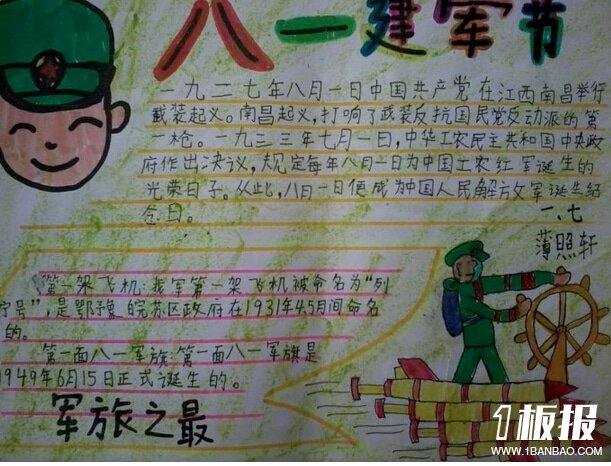 八一建军节
一九二七年八月一日中国共产党在江西南昌举行
武装起义。南昌起义,打响了武装反抗国民党反动派的第
一枪。一九三三年七月一日,中华工农民主共和国中央政
府作出决议,规定每年八月一日为中国工农红军诞生的
光荣日子。从此,八月一日便成为中国人民解放军诞生纪
念日。
一、七
薄照轩
第一架飞机:我军第一架飞机被命名为“列
宁号”,是鄂豫皖苏区政府在1931年4.5月间命名
的。
第一面八一军旗:第一面八一军旗是
1949年6月15日正式诞生的。
军旅之最
1板报
WWW.1BANBAO.COM